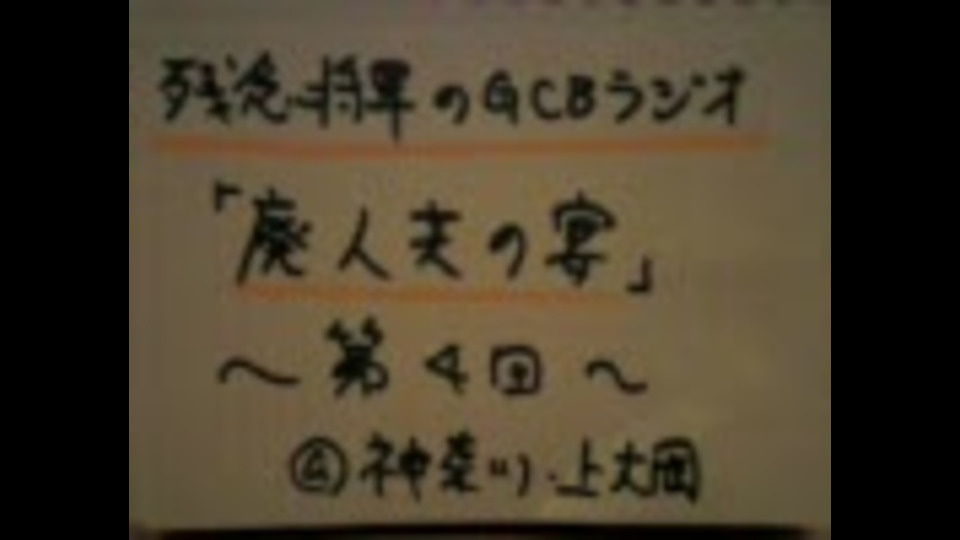 残念将軍のGCBラジオ
「廃人夫の宴」
～第4回～
@神奈川・上大岡